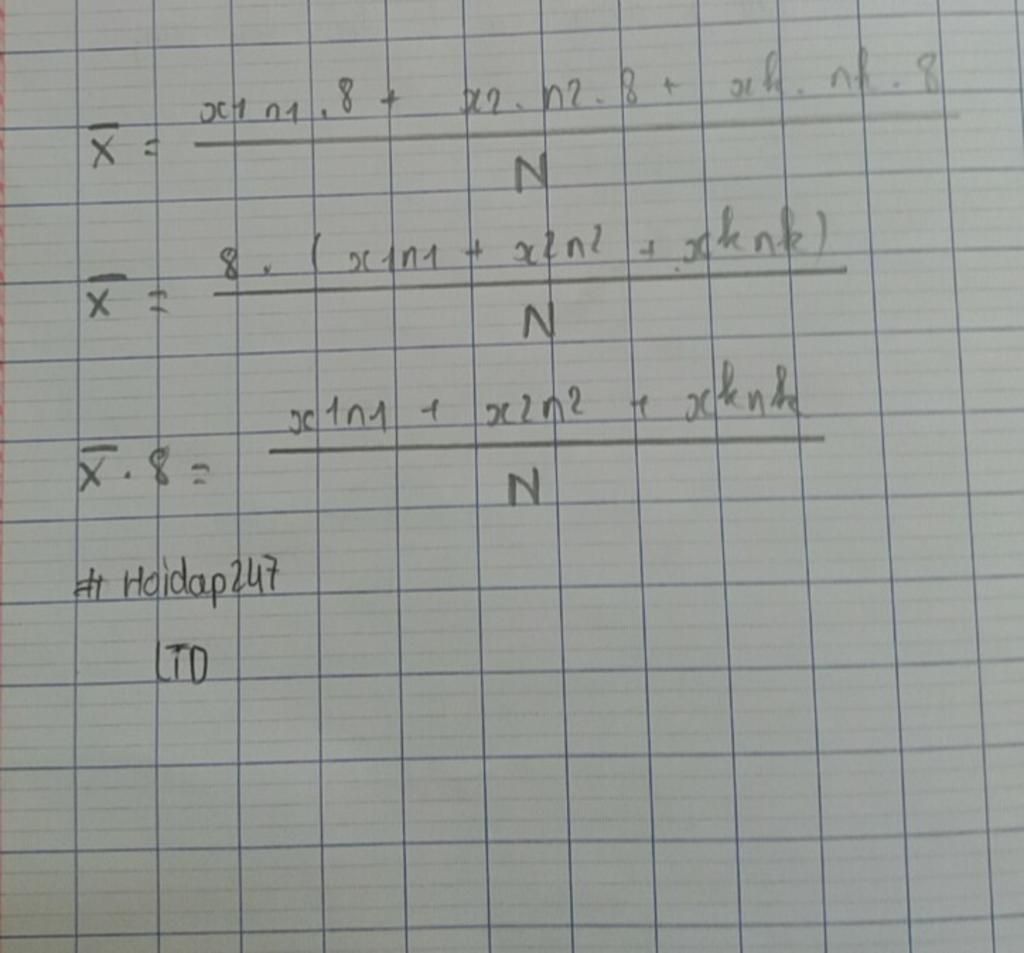 x1 n1 . 8 + x2 . n2 . 8 + xk . nk . 8
X̅ =
N
8 . ( x1n1 + x2n2 + xknk)
X̅ =
N
x1n1 + x2n2 + xknk
X̅ . 8 =
N
# Hoidap247
LTD